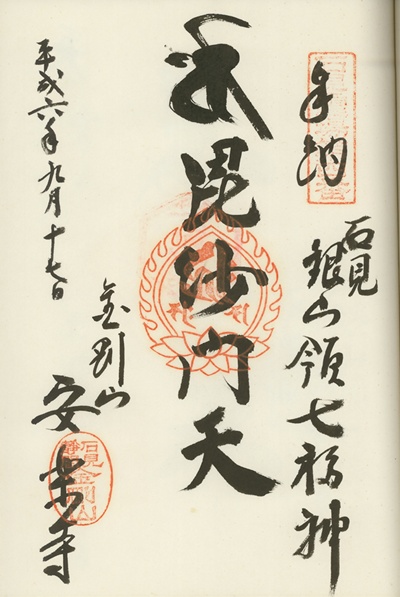 奉納
石見
銀山領七福神
毘沙門天
金剛山
安楽寺
平成六年九月十七日